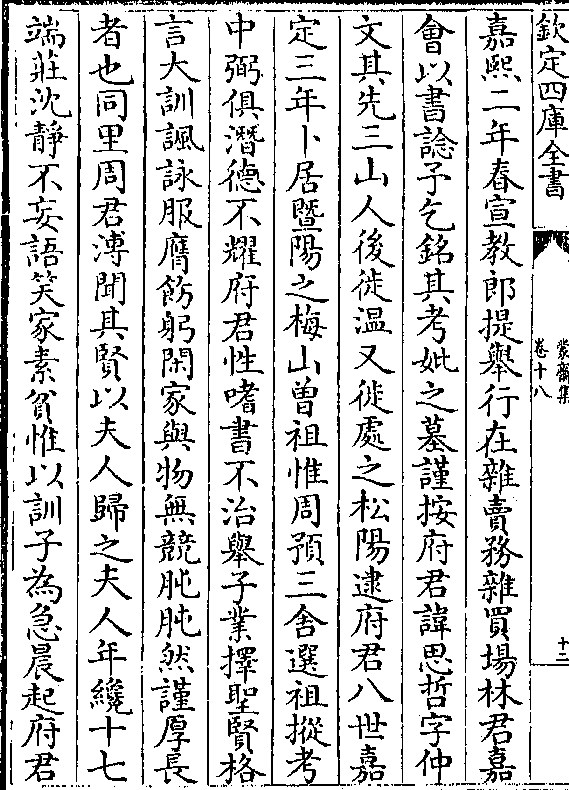 欽定四庫全書
蒙齋集
卷十八
十二
嘉熙二年春宣教郎提舉行在雜賣務雜買場林君嘉
會以書諗予乞銘其考妣之墓謹按府君諱思哲字仲
文其先三山人後徙温又徙處之松陽逮府君八世嘉
定三年卜居暨陽之梅山曽祖惟周預三舍選祖摐考
中弼俱潛德不耀府君性嗜書不治舉子業擇聖賢格
言大訓諷詠服膺飭躬閑家與物無競肫肫然謹厚長
者也同里周君漙聞其賢以夫人歸之夫人年纔十七
端莊沈靜不妄語笑家素貧惟以訓子為急晨起府君